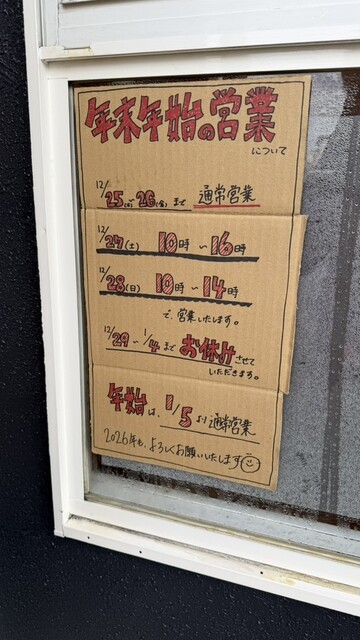 年末年始の営業
について
12/25(木) 26(金)まで 通常営業
12/27(土) 10時〜16時
12/28(日) 10時〜14時
で、営業いたします。
12/29〜1/4まで お休みさせて
いただきます。
年始は、1/5より通常営業
2026年も、よろしくお願いいたします